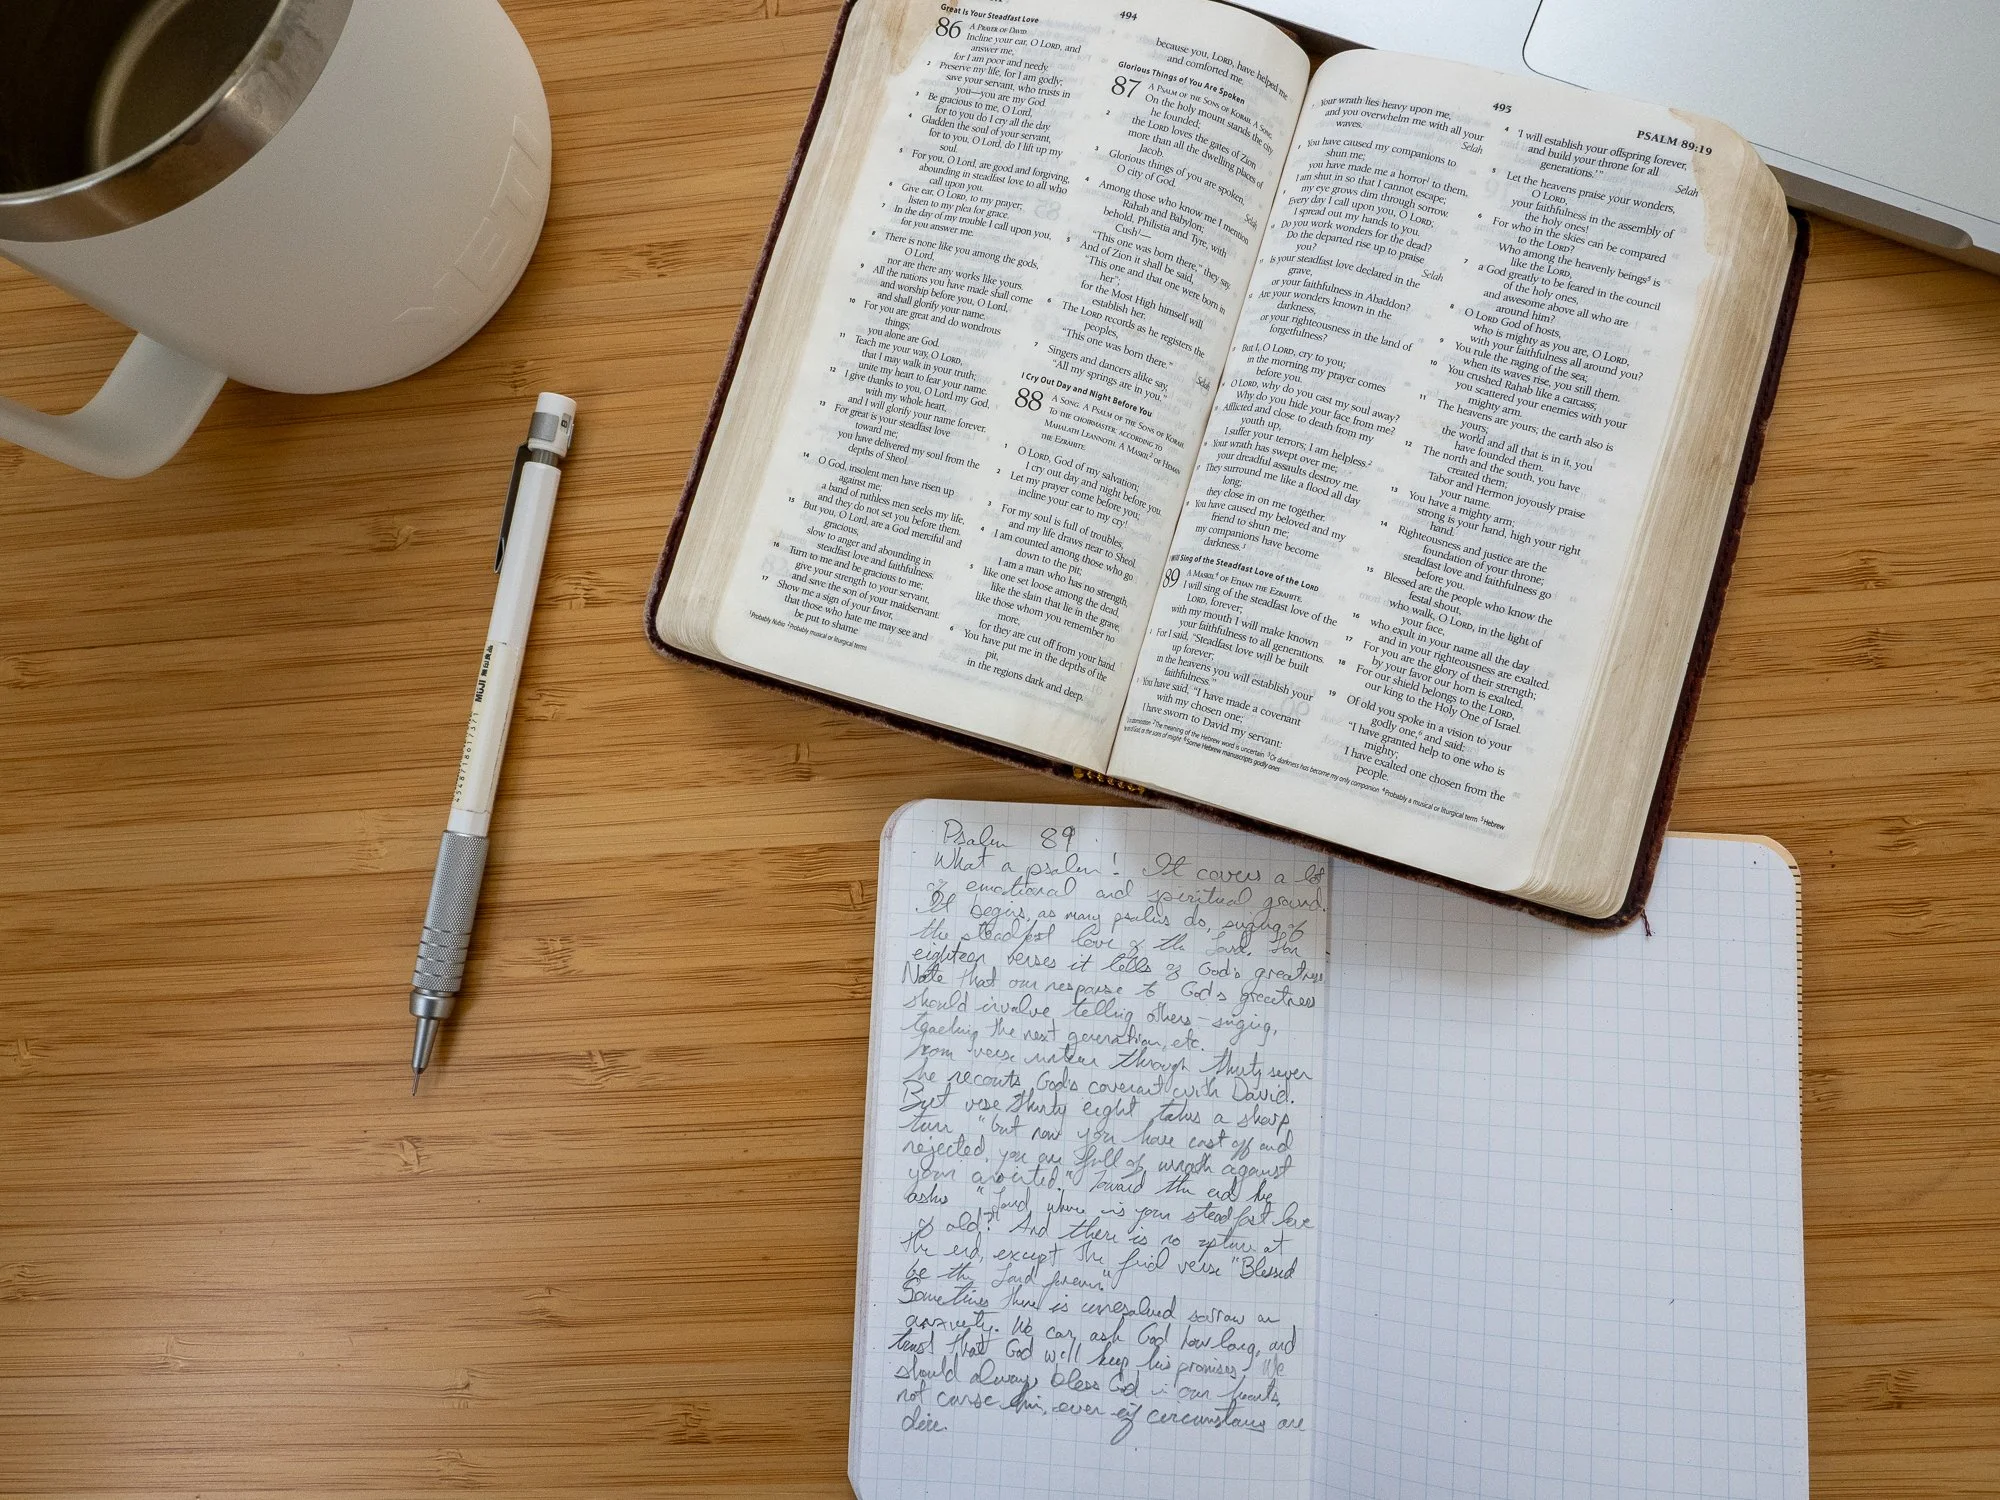 YETI
MUJI 無印良品
4548718017371
Great Is Your Steadfast Love
86 A PRAYER OF DAVID
Incline your ear, O LORD, and
answer me,
for I am poor and needy.
2 Preserve my life, for I am godly;
save your servant, who trusts in
you—you are my God.
3 Be gracious to me, O Lord,
for to you do I cry all the day.
4 Gladden the soul of your servant,
for to you, O Lord, do I lift up my
soul.
5 For you, O Lord, are good and forgiving,
abounding in steadfast love to all who
call upon you.
6 Give ear, O LORD, to my prayer;
listen to my plea for grace.
7 In the day of my trouble I call upon you,
for you answer me.
8 There is none like you among the gods,
O Lord,
nor are there any works like yours.
9 All the nations you have made shall come
and worship before you, O Lord,
and shall glorify your name.
10 For you are great and do wondrous
things;
you alone are God.
11 Teach me your way, O LORD,
that I may walk in your truth;
unite my heart to fear your name.
12 I give thanks to you, O Lord my God,
with my whole heart,
and I will glorify your name forever.
13 For great is your steadfast love
toward me;
you have delivered my soul from the
depths of Sheol.
14 O God, insolent men have risen up
against me;
a band of ruthless men seeks my life,
and they do not set you before them.
15 But you, O Lord, are a God merciful and
gracious,
slow to anger and abounding in
steadfast love and faithfulness.
16 Turn to me and be gracious to me;
give your strength to your servant,
and save the son of your maidservant.
17 Show me a sign of your favor,
that those who hate me may see and
be put to shame
1 Probably Nubia 2 Probably musical or liturgical terms
494
because you, LORD, have helped me
and comforted me.
Glorious Things of You Are Spoken
87 A PSALM OF THE SONS OF KORAH. A SONG.
On the holy mount stands the city
he founded;
2 the LORD loves the gates of Zion
more than all the dwelling places of
Jacob.
3 Glorious things of you are spoken,
O city of God. Selah
4 Among those who know me I mention
Rahab and Babylon;
behold, Philistia and Tyre, with
Cush1—
"This one was born there," they say.
5 And of Zion it shall be said,
"This one and that one were born in
her";
for the Most High himself will
establish her.
6 The LORD records as he registers the
peoples,
"This one was born there." Selah
7 Singers and dancers alike say,
"All my springs are in you."
I Cry Out Day and Night Before You
88 A SONG. A PSALM OF THE SONS OF KORAH.
TO THE CHOIRMASTER: ACCORDING TO
MAHALATH LEANNOTH. A MASKIL2 OF HEMAN
THE EZRAHITE.
1 O LORD, God of my salvation;
I cry out day and night before you.
2 Let my prayer come before you;
incline your ear to my cry!
3 For my soul is full of troubles,
and my life draws near to Sheol.
4 I am counted among those who go
down to the pit;
I am a man who has no strength,
5 like one set loose among the dead,
like the slain that lie in the grave,
like those whom you remember no
more,
for they are cut off from your hand.
6 You have put me in the depths of the
pit,
in the regions dark and deep.
495
PSALM 89:19
Your wrath lies heavy upon me,
and you overwhelm me with all your
waves. Selah
You have caused my companions to
shun me;
you have made me a horror1 to them.
I am shut in so that I cannot escape;
my eye grows dim through sorrow.
Every day I call upon you, O LORD;
I spread out my hands to you.
Do you work wonders for the dead?
Do the departed rise up to praise
you? Selah
Is your steadfast love declared in the
grave,
or your faithfulness in Abaddon?
Are your wonders known in the
darkness,
or your righteousness in the land of
forgetfulness?
But I, O LORD, cry to you;
in the morning my prayer comes
before you.
O LORD, why do you cast my soul away?
Why do you hide your face from me?
Afflicted and close to death from my
youth up,
I suffer your terrors; I am helpless.2
Your wrath has swept over me;
your dreadful assaults destroy me.
They surround me like a flood all day
long;
they close in on me together.
You have caused my beloved and my
friend to shun me;
my companions have become
darkness.3
I Will Sing of the Steadfast Love of the LORD
89 A MASKIL4 OF ETHAN THE EZRAHITE.
I will sing of the steadfast love of the
LORD, forever;
with my mouth I will make known
your faithfulness to all generations.
For I said, "Steadfast love will be built
up forever;
in the heavens you will establish your
faithfulness."
You have said, "I have made a covenant
with my chosen one;
I have sworn to David my servant:
4 'I will establish your offspring forever,
and build your throne for all
generations.'" Selah
5 Let the heavens praise your wonders,
O LORD,
your faithfulness in the assembly of
the holy ones!
6 For who in the skies can be compared
to the LORD?
Who among the heavenly beings5 is
like the LORD,
7 a God greatly to be feared in the council
of the holy ones,
and awesome above all who are
around him?
8 O LORD God of hosts,
who is mighty as you are, O LORD,
with your faithfulness all around you?
9 You rule the raging of the sea;
when its waves rise, you still them.
10 You crushed Rahab like a carcass;
you scattered your enemies with your
mighty arm.
11 The heavens are yours; the earth also is
yours;
the world and all that is in it, you
have founded them.
12 The north and the south, you have
created them;
Tabor and Hermon joyously praise
your name.
13 You have a mighty arm;
strong is your hand, high your right
hand.
14 Righteousness and justice are the
foundation of your throne;
steadfast love and faithfulness go
before you.
15 Blessed are the people who know the
festal shout,
who walk, O LORD, in the light of
your face,
16 who exult in your name all the day
and in your righteousness are exalted.
17 For you are the glory of their strength;
by your favor our horn is exalted.
18 For our shield belongs to the LORD,
our king to the Holy One of Israel.
19 Of old you spoke in a vision to your
godly one,6 and said:
"I have granted help to one who is
mighty;
I have exalted one chosen from the
people.
2 The meaning of the Hebrew word is uncertain 3 Or darkness has become my only companion 4 Probably a musical or liturgical term 5 Hebrew
6 Some Hebrew manuscripts godly ones
Psalm 89
What a psalm! It covers a lot
of emotional and spiritual ground.
It begins, as many psalms do, singing of
the steadfast love of the Lord. For
eighteen verses it tells of God's greatness
Note that our response to God's greatness
should involve telling others - singing,
teaching the next generation, etc.
From verse nineteen through thirty seven
he recounts God's covenant with David.
But verse thirty eight takes a sharp
turn "but now you have cast off and
rejected, you are full of wrath against
your anointed." Toward the end he
asks "Lord, where is your steadfast love
of old?" And there is no upturn at
the end, except the final verse "Blessed
be the Lord forever."
Sometimes there is unresolved sorrow or
anxiety. We can ask God how long, and
trust that God will keep his promises. We
should always bless God in our hearts,
not curse him, even if circumstances are
dire.